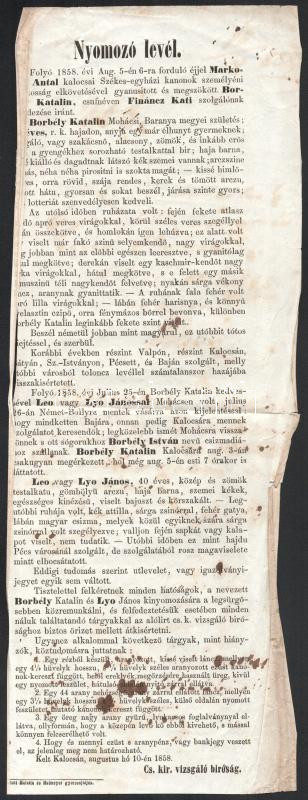 Nyomozó levél.
Folyó 1858. évi Aug. 5-én 6-ra forduló éjjel Marko-
Antal kalocsai Székes-egyházi kanonok személyéni
osság elkövetésével gyanusított és megszökött Bor-
Katalin, csufnéven Fináncz Kati szolgálónak
dezése iránt.
Borbély Katalin Mohácsi, Baranya megyei születés;
éves, r. k. hajadon, anyja egy már elhunyt gyermeknek;
gáló, vagy szakácsnő, alacsony, zömök, és inkább erős
a gyengékhez sorozható testalkattal bir; haja barna,
kiálló és dagadtnak látszó kék szemei vannak; arczszine
ás, néha néha pirositni is szokta magát; — kissé himlő-
es, orra rövid, szája rendes, kerek és tömött arczu,
ott hátu, gyorsan és sokat beszél, járása szinte gyors;
lotteriát szenvedélyesen kedveli.
Az utólsó időben ruházata volt: fején fekete atlasz
dő apró veres virágokkal, körül széles veres szegéllyel
án összekötve, és homlokán igen lehúzva; ez alatt volt
viselt már fakó szinű selyemkendő, nagy virágokkal,
g jobban mint az előbbi egészen leeresztve, s gyanitólag
tul megkötve; derekán viselt egy kaschmir-kendőt nagy
rka virágokkal, hátul megkötve, s e felett egy másik
muszinű téli nagykendőt felvetve; nyakán sárga vékony
ncz, aranynak gyanittatik. — A ruhának fala fehér volt
erő lilla virágokkal; — lábán fehér harisnya, és könnyű
uhelasztin czipő, orra fénymázos bőrrel bevonva, különben
orbély Katalin leginkább fekete szint viselt.
Beszél németül jobban mint magyarul, ez utóbbit tótos
ejtéssel, és szerbül.
Korábbi években részint Valpón, részint Kalocsán,
pátyán, Sz.-Istványon, Pécsett, és Baján szolgált, melly
tóbbi városból toloncz levéllel számtalanszor hazájába
isszakísértetett.
Folyó 1858. évi Julius 25-én, Borbély Katalin kedvesével
Leo vagy Lyo Jánossal Mohácson volt, julius
26-án Német-Bóllyra mentek vásárra azon kijelentéssel,
ogy mindketten Bajára, onnan pedig Kalocsára mennek
zolgálatot keresendők; legközelebb ismét Mohácsra vissza
önnek s ott sógorukhoz Borbély István nevű csizmadiá-
oz szállanak. Borbély Katalin Kalocsára aug. 3-án
sakugyan megérkezett, hol még aug. 5-én esti 7 órakor is
láttatott.
Leo vagy Lyo János, 40 éves, közép és zömök
testalkatu, gömbölyű arczu, haja barna, szemei kékek,
egészséges kinézésű, viselt bajuszt és körszakált. — Leg-
utóbbi ruhája volt, kék attilla, sárga zsinórral, fehér gatya,
lábán magyar csizma, melyek közül egyiknek szára sárga
zsinórral volt szegélyezve; valljon fején sapkát vagy kala-
pot viselt, nem tudatik. — Utóbbi időben ez mint hajdu
Pécs városánál szolgált, de szolgálatából rosz magaviselete
miatt elbocsátatott.
Eddigi tudomás szerint utlevelet, vagy igazolványi-
jegyet egyik sem váltott.
Tisztelettel fölkéretnek minden hatóságok, a nevezett
Borbély Katalin és Lyo János kinyomozására a legsürgő-
sebben közremunkálni, és felfedeztetésük esetében minden
náluk találtatandó tárgyakkal az alólirt cs. k. vizsgáló bi-
rósághoz biztos őrizet mellett átkisértetni.
Ugyanez alkalommal következő tárgyak, mint hiány-
zók, köztudomásra juttatnak:
1. Egy rézből készült
egy 4½ hüvelyk hosszu, 1½ hüvelyk széles aranyozott ezüst
nok-kereszt függött, belől ereklyék megőrzésére használt üreg, kivül
egy nyomatu feszület, hátulsó
2. Egy 44 arany nehézségű mellyen
egy 3½ hüvelyk hosszu, 2 hüvelyk széles, külső oldalán nyomott
feszületet mutató kánonok kereszt függött.
3. Egy öreg nagy arany gyűrű, foglalványnyal el-
látva, ollyformán, hogy a középen lévő kő ebből kivehető, s másal
könnyen felcserélhető volt.
4. Hogy és mennyi ezüst s aranypénz, vagy bankjegy veszett
el, az jelenleg meg nem határozható.
Kelt Kalocsán, augustus hó 10-én 1858.
Cs. kir. vizsgáló biróság.